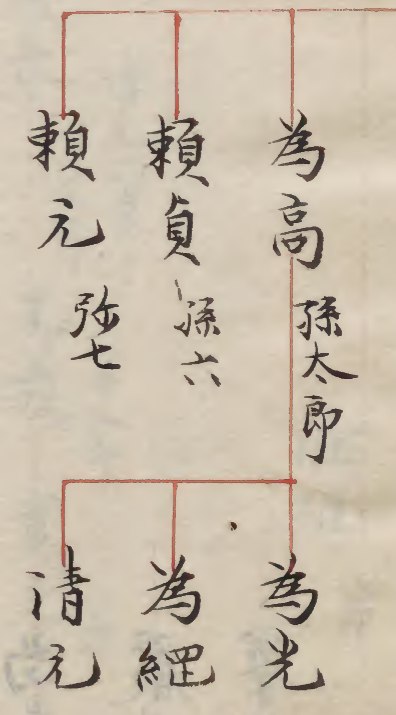 為高
孫太郎
頼貞
孫六
頼元
弥七
為光
為綱
清元